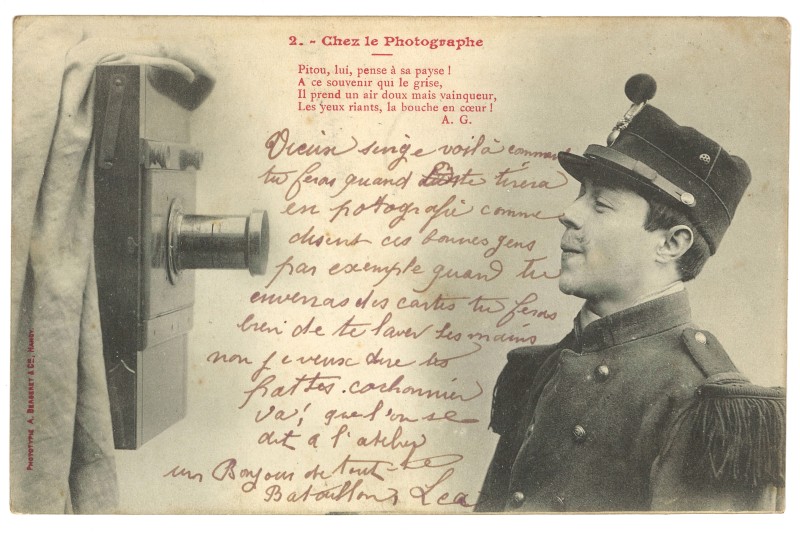 2. - Chez le Photographe
Pitou, lui, pense à sa payse !
A ce souvenir qui le grise,
Il prend un air doux mais vainqueur,
Les yeux riants, la bouche en cœur !
A. G.
Vieux singe voilà comment
tu feras quand te tirera
en potografie comme
disent ces bonnes gens
par exemple quand tu
enverras des cartes tu feras
bien de te laver les mains
non je veux dire tes
pattes. cochonnier
va! que l'on se
dit à l'atelier
un Bonjour de tout le
Bataillon Lea
PHOTOTYPIE A. BERGERET & Cie, NANCY